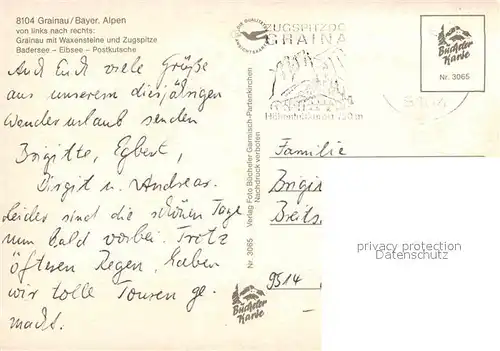 8104 Grainau/Bayer. Alpen
von links nach rechts:
Grainau mit Waxensteine und Zugspitze
Badersee – Eibsee – Postkutsche
Auch Euch viele Grüße
aus unserem diesjährigen
Wanderurlaub senden
Brigitte, Egbert,
Birgit u. Andreas.
Leider sind die schönen Tage
nun bald vorbei. Trotz
öfteren Regen, haben
wir tolle Touren ge-
macht.
Verlag Foto Bücheler Garmisch-Partenkirchen
Nachdruck verboten
Nr. 3065
Bücheler
Karte
ZUGSPITZDO
GRAINA
Bücheler
Karte
Nr. 3065
Familie
Brigi
Breits
9514
privacy protection
Datenschutz